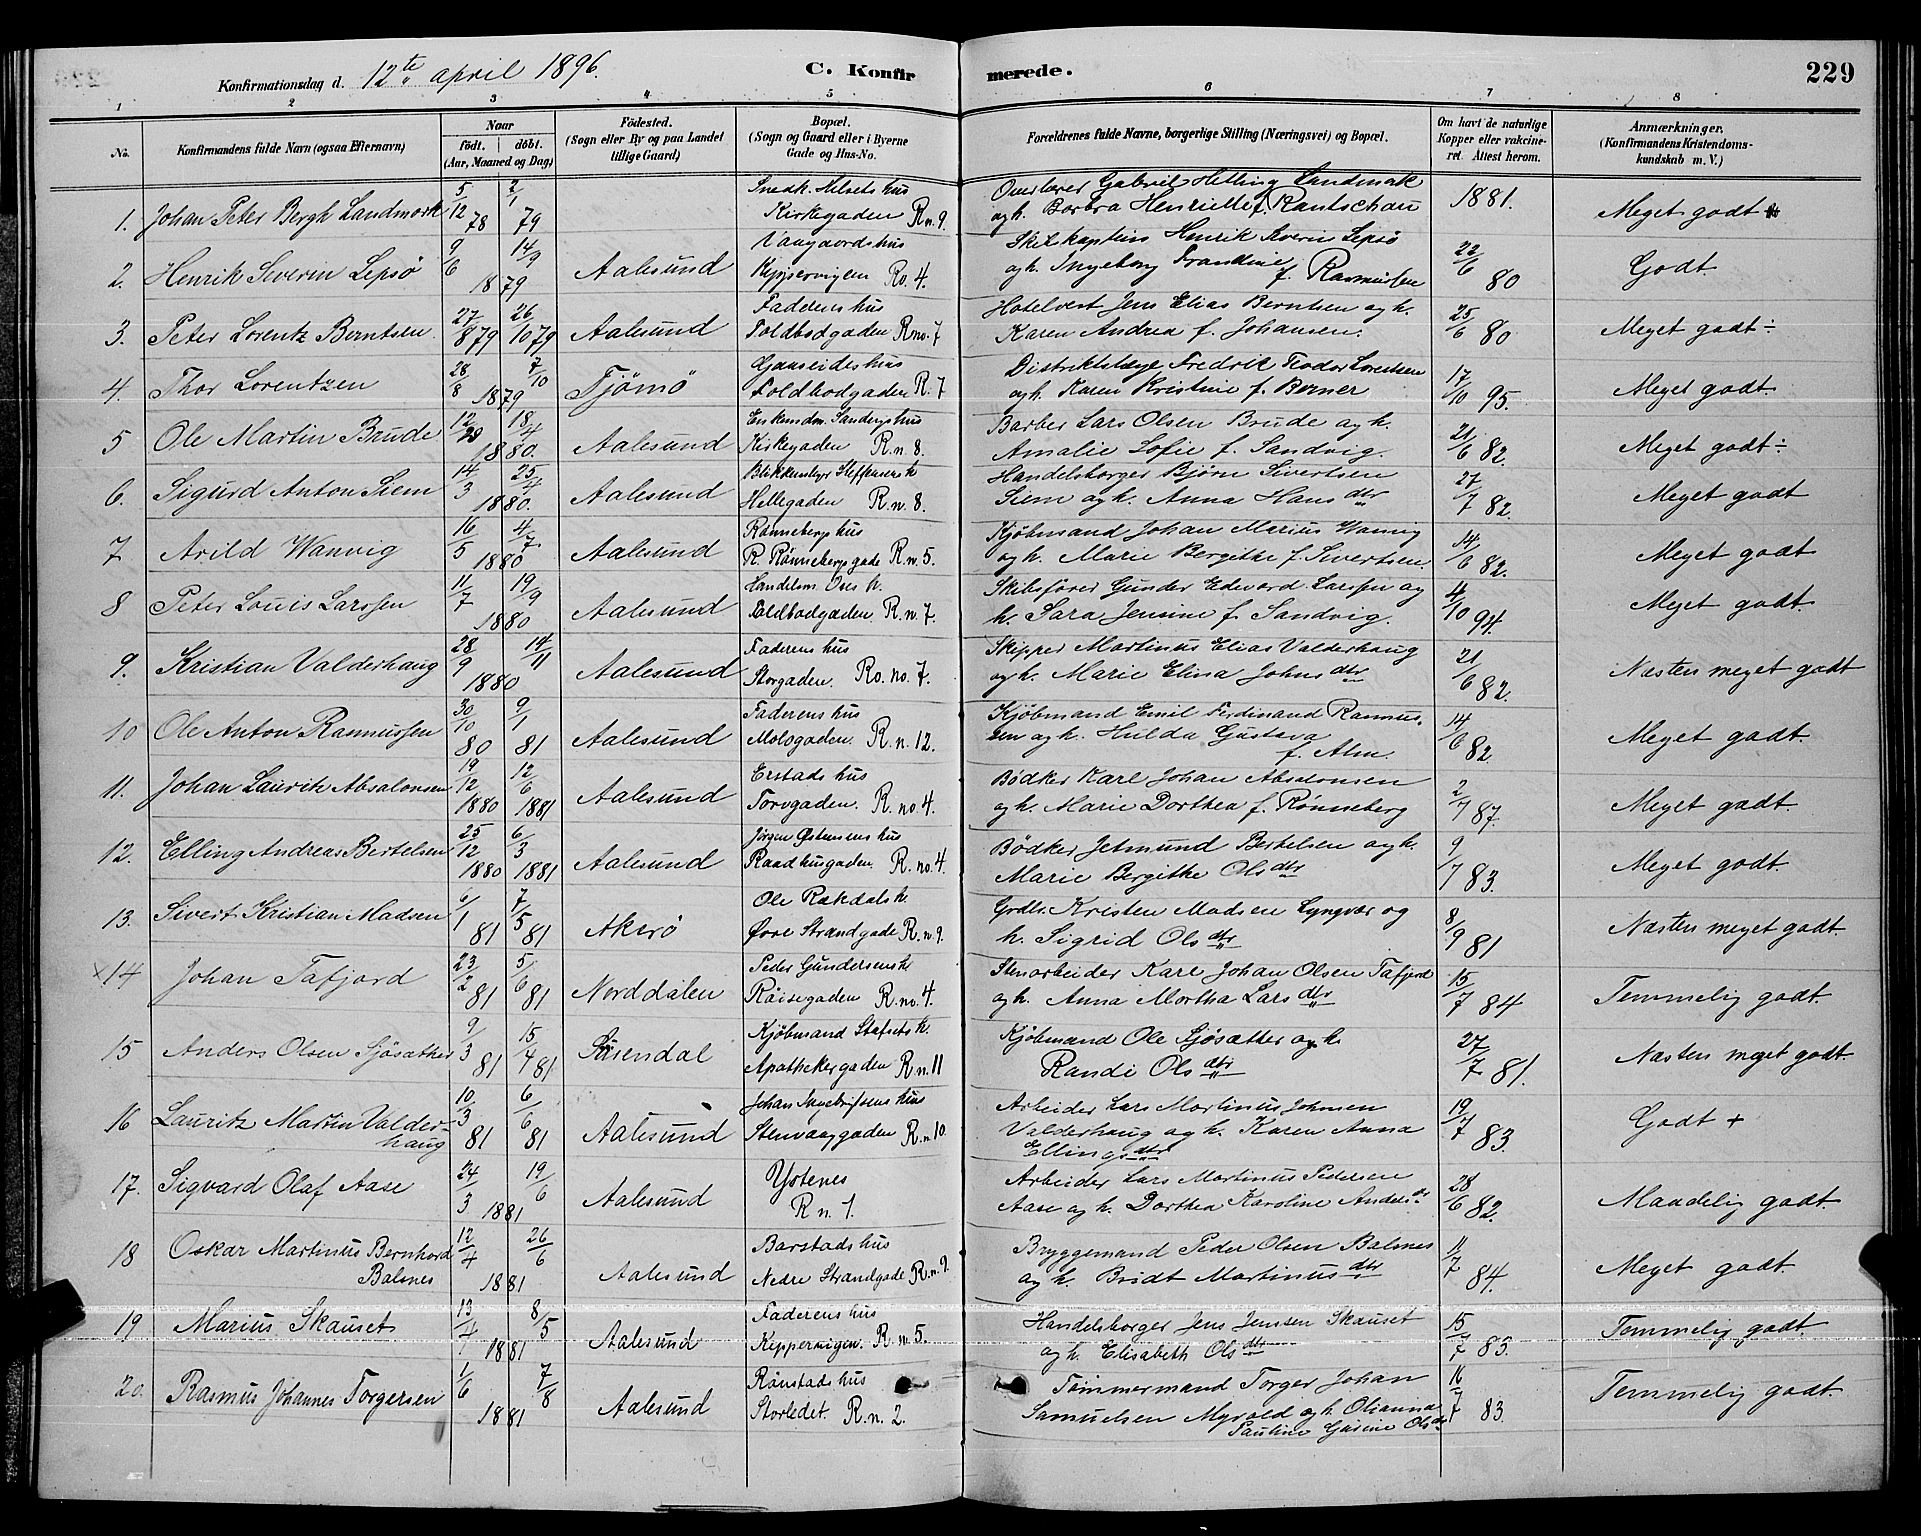 229
Konfirmationsdag d. 12te april 1896.
C. Konfirmerede.
1 2 3 4 5 6 7 8
No. Konfirmandens fulde Navn (ogsaa Efternavn) Naar født. døbt. (Aar, Maaned og Dag) Födested. (Sogn eller By og paa Landet tillige Gaard) Bopæl. (Sogn og Gaard eller i Byerne Gade og Hus-No. Forældrenes fulde Navne, borgerlige Stilling (Næringsvei) og Bopæl. Om havt de naturlige Kopper eller vakcineret. Attest herom. Anmærkninger. (Konfirmandens Kristendomskundskab m. V.)
1. Johan Peter Bergh Landmork 5/12 78 2/1 79 Snedk. Helsets hus Kirkegaden R n. 9. Overlærer Gabriel Helling Landmak og h. Borbra Henriette f. Rantschau 1881. Meget godt
2. Henrik Severin Lepsö 9/6 14/9 1879 Aalesund Vaagaardshus Kippervigen Ro. 4. Skibskaptein Henrik Severin Lepsö og h. Ingeborg Frandine f. Rasmussen 22/6 80 Godt
3. Peter Lorentz Berntsen 27/8 79 26/10 79 Aalesund Faderens hus Toldbodgaden R no. 7 Hotelvert Jens Elias Berntsen og h. Karen Andrea f. Johansen. 25/6 80 Meget godt ÷
4. Thor Lorentzen 28/8 7/10 1879 Tjömö Gaaseides hus Toldbodgaden R. 7 Distriktslæge Fredrik Teodor Lorentzen og h. Karen Kristine f. Berner 17/10 95. Meget godt.
5 Ole Martin Brude 12/ 18/4 1880. Aalesund Sandvigs hus Kirkegaden R. n. 8. Barber Lars Olsen Brude og h. Amalie Sofie f. Sandvig. 21/6 82. Meget godt ÷
6. Sigurd Anton Siem 14/3 25/4 1880. Aalesund Blikkenslager Steffensens h Hellegaden R. n. 8. Handelsborger Bjørn Sivertsen Siem og h. Anna Hans dtr 27/7 82. Meget godt
7 Arild Wanvig 16/5 4/7 1880 Aalesund Rønnebergs hus R. Rønnebergs gade R n. 5. Kjøbmand Johan Marius Wanvig og h. Marie Bergithe f. Sivertsen. 14/6 82. Meget godt
8 Peter Louis Larssen 11/7 19/9 1880 Aalesund Handelsm Oses h. Toldbodgaden R. n. 7. Skibsfører Gunder Edvard Larssen og h. Sara Jensine f. Sandvig. 4/10 94. Meget godt.
9. Kristian Valderhaug 28/9 14/11 1880 Aalesund Faderens hus Storgaden. Ro. no. 7. Skipper Martinus Elias Valderhaug og h. Marie Elina Johns dtr 21/6 82. Næsten meget godt
10 Ole Anton Rasmussen 30/10 80 9/1 81 Aalesund Faderens hus Mologaden. R. n. 12. Kjöbmand Emil Ferdinand Rasmussen og h. Hulda Gustava f. Alm. 14/6 82. Meget godt.
11. Johan Lauritz Absalonsen 19/12 1880 12/6 1881 Aalesund Erstads hus Torvgaden. R. no. 4. Bödker Karl Johan Absalonsen og h. Marie Dorthea f. Rönneberg 2/7 87. Meget godt.
12. Elling Andreas Bertelsen 25/12 1880 6/3 1881 Aalesund Jörgen Østensens hus Raadhusgaden. R. no. 4. Bödker Jetmund Bertelsen og h. Marie Bergithe Ols dtr 9/7 83. Meget godt.
13. Sivert Kristian Madsen 6/1 81 7/5 81 Akerö Ole Rækdals h. Øvre Strandgade R. n. 9. Grdbr. Kristen Madsen Lyngvær og h. Sigrid Ols dtr 8/9 81 Næsten meget godt.
×14 Johan Tafjord 23/2 81 5/6 81 Norddalen Peder Gundersens h Röisegaden R. no. 4. Stenarbeider Karl Johan Olsen Tafjord og h. Anna Martha Lars dtr 15/7 84 Temmelig godt.
15 Anders Olsen Sjösæther 9/3 81 15/4 81 Surendal Kjöbmand Stafsets h. Apothekergaden R n. 11 Kjöbmand Ole Sjösæther og h. Randi Ols dtr 27/7 81. Næsten meget godt.
16 Lauritz Martin Valderhaug 10/3 81 6/6 81 Aalesund Johan Ingebrigtsens hus Stenvaaggaden R. n. 10. Arbeider Lars Martinus Johnsen Valderhaug og h. Karen Anna Ellings dtr 19/7 83. Godt +
17. Sigvard Olaf Aase 24/3 19/6 1881 Aalesund Ystenes R n. 1. Arbeider Lars Martinus Pedersen Aase og h. Dorthea Karoline Anders dr 28/6 82. Maadelig godt.
18 Oskar Martinus Bernhard Balsnes 12/4 26/6 1881 Aalesund Barstads hus Nedre Strandgade R n. 9. Bryggemand Peder Olsen Balsnes og h. Bridt Martinus dtr 11/7 84. Meget godt.
19 Marius Skauset 13/4 8/5 1881 Aalesund Faderens hus Kippervigen. R n. 5. Handelsborger Jens Jensen Skauset og h. Elisabeth Ols dtr 15/7 83. Temmelig godt.
20. Rasmus Johannes Torgersen 1/6 7/8 1881 Aalesund Rönstads hus Storledet. R. n. 2. Tömmermand Torger Johan Samuelsen Myrold og h. Olianna Pauline Gurine Ols dr 16/7 83. Temmelig godt.